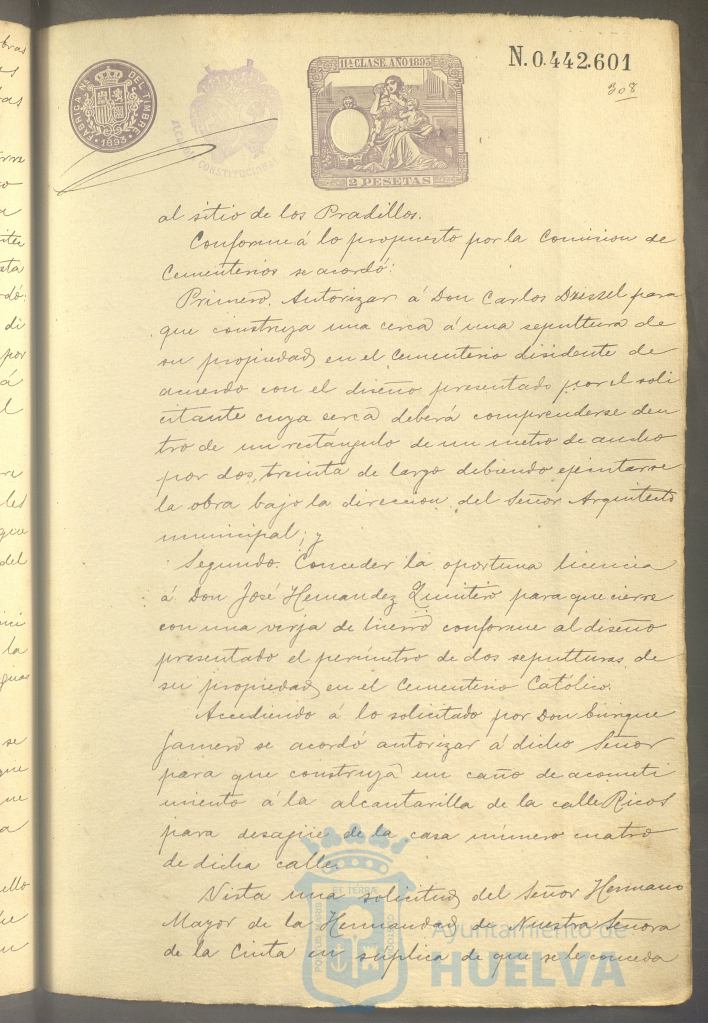 N. 0.442.601
308
11ª CLASE. AÑO 1893
2 PESETAS
FABRICA Nal DEL TIMBRE
1893
ALCALDIA CONSTITUCIONAL
al sitio de los Pradillos.
Conforme á lo propuesto por la Comision de
Cementerios se acordó:
Primero. Autorizar á Don Carlos para
que construya una cerca á una sepultura de
su propiedad en el Cementerio disidente de
acuerdo con el diseño presentado por el soli
citante cuya serca deberá comprenderse den
tro de un rectángulo de un metro de ancho
por dos, treinta de largo debiendo ejecutarse
la obra bajo la direccion del Señor Arquitecto
municipal; y
Segundo. Conceder la oportuna licencia
á Don José Hernandez Quintero para que cierre
con una verja de hierro conforme al diseño
presentado el perímetro de dos sepulturas de
su propiedad en el Cementerio Católico.
Accediendo á lo solicitado por Don Enrique
Jamero se acordó autorizar á dicho Señor
para que construya un caño de acometi
miento á la alcantarilla de la calle Ricos
para desagüe de la casa número cuatro
de dicha calle.
Vista una solicitud del Señor Hermano
Mayor de la Hermandad de Nuestra Señora
de la Cinta en súplica de que se le conceda
Ayuntamiento de
HUELVA